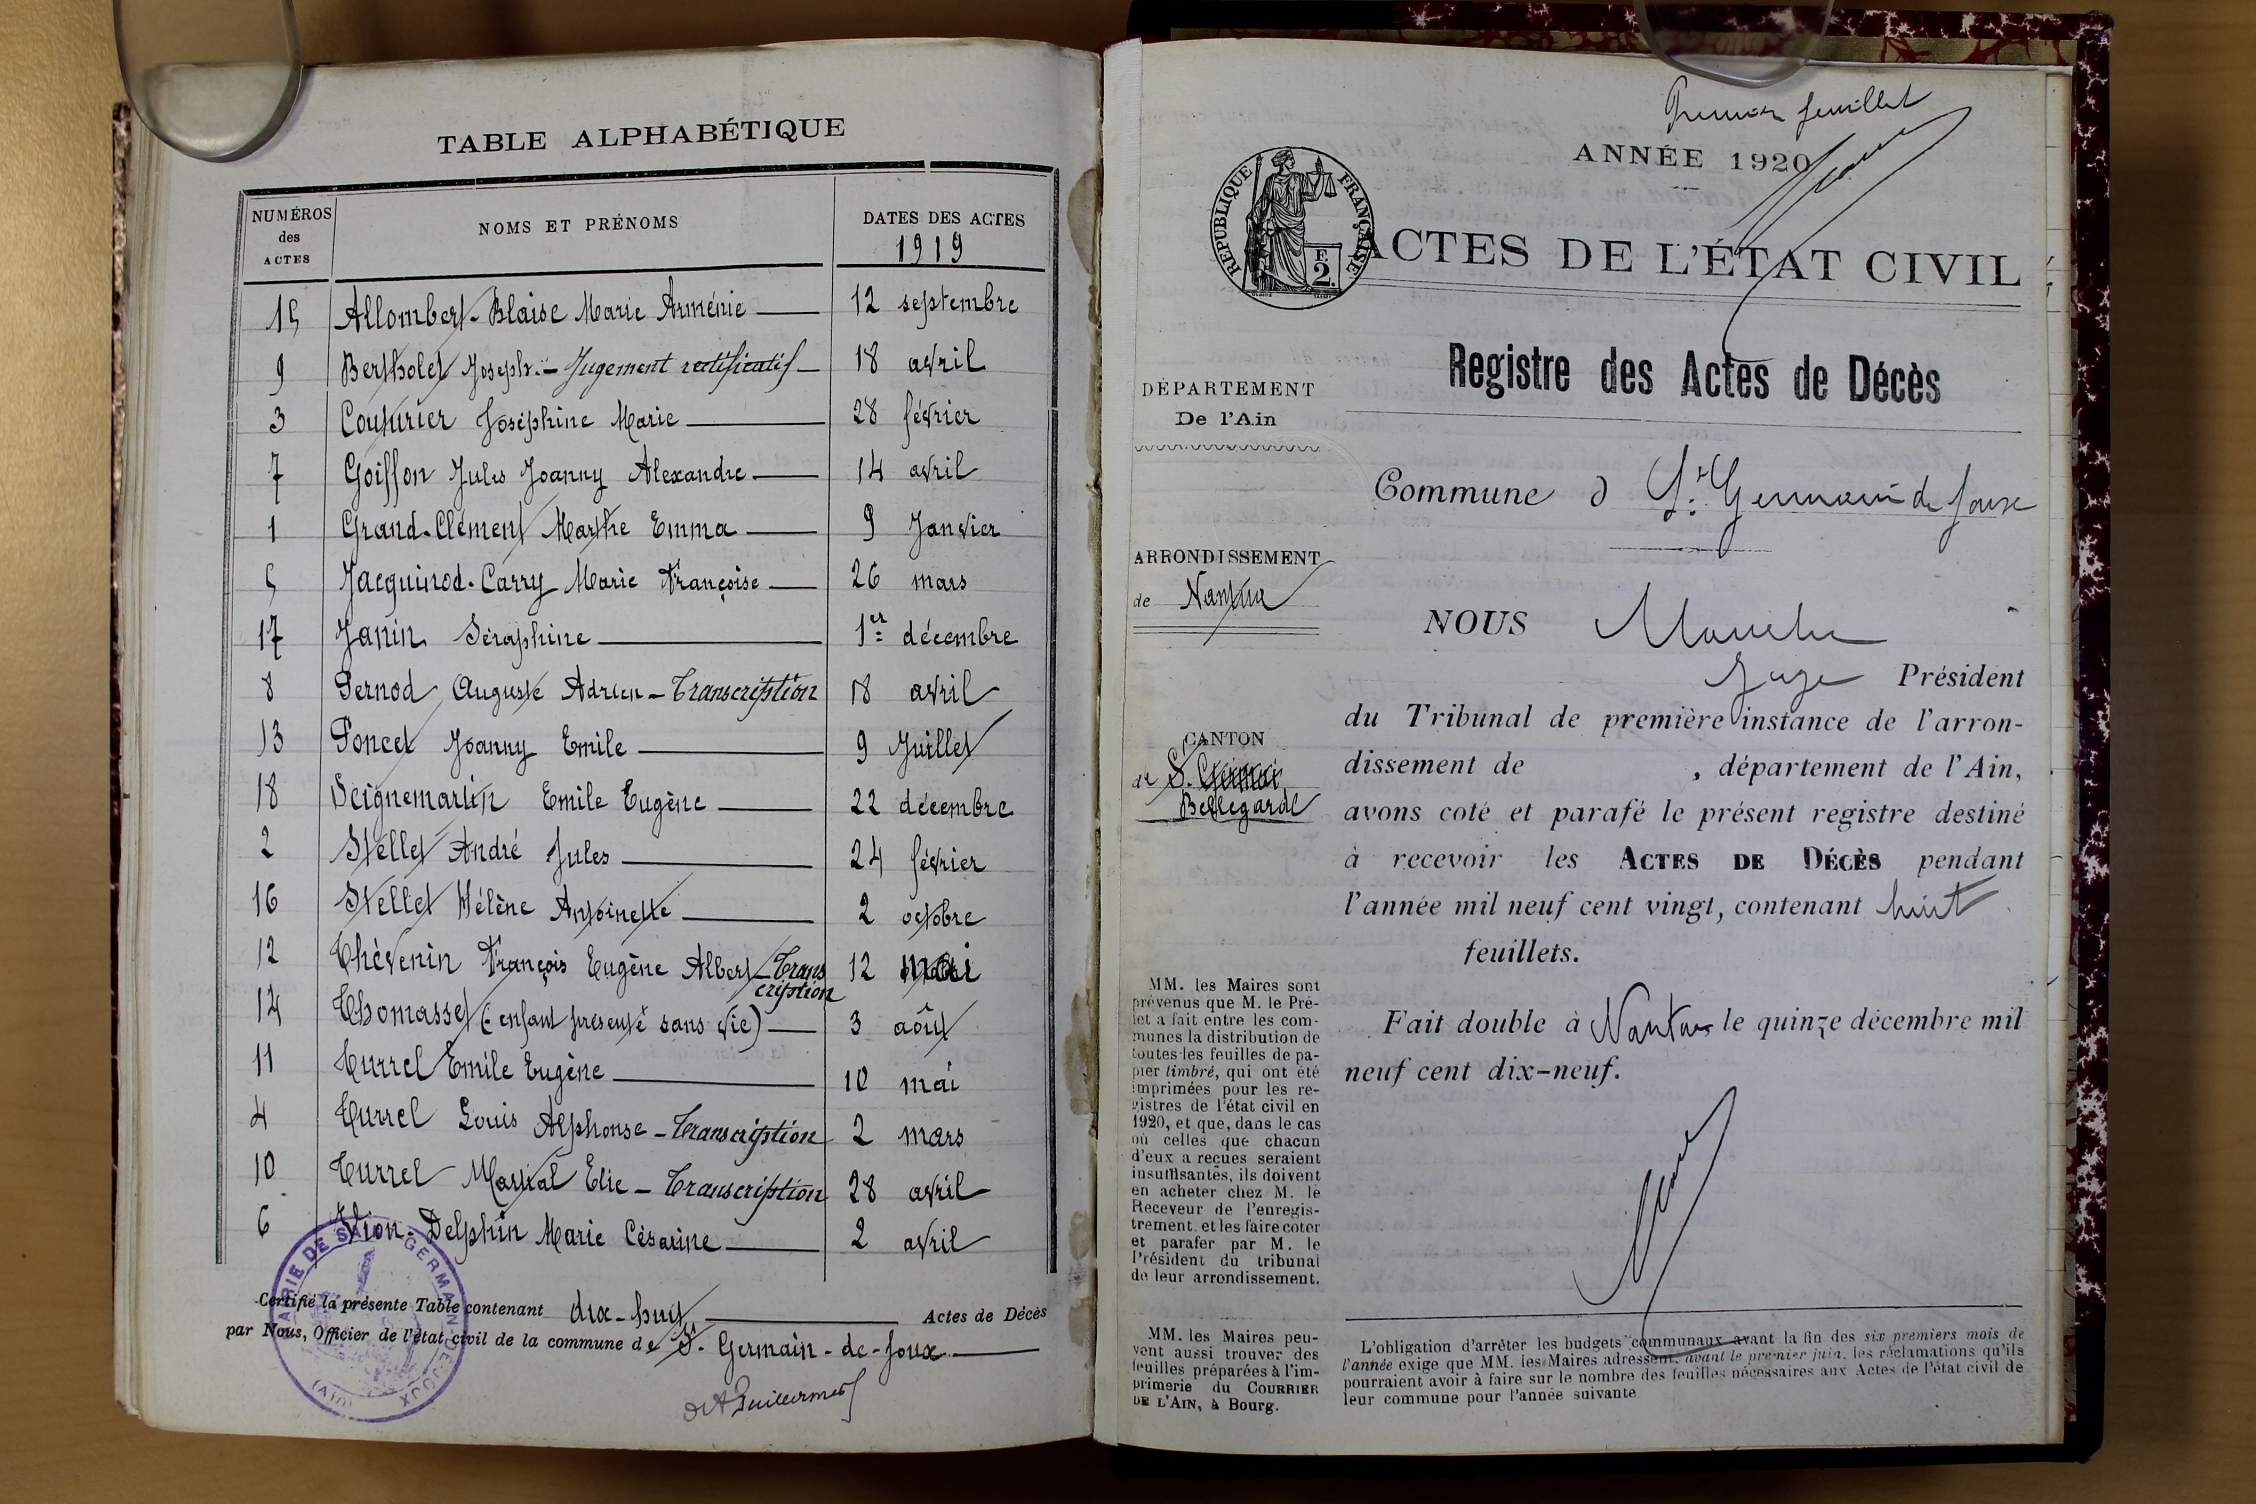 TABLE ALPHABÉTIQUE
NUMÉROS des ACTES
NOMS ET PRÉNOMS
DATES DES ACTES
1919
15 Allombert-Blaise Marie Arménie 12 septembre
9 Bertholet Joseph.- Jugement rectificatif 18 avril
3 Couturier Joséphine Marie 28 février
7 Goiffon Jules Joanny Alexandre 14 avril
1 Grand-Clément Marthe Emma 9 Janvier
5 Jacquinod-Carry Marie Françoise 26 mars
17 Janin Séraphine 1er décembre
8 Pernod Auguste Adrien - Transcription 18 avril
13 Poncet Joanny Emile 9 Juillet
18 Seignemartin Emile Eugène 22 décembre
2 Stellet André Jules 24 février
16 Stellet Hélène Antoinette 2 octobre
12 Thèvenin François Eugène Albert - Transcription 12 mai
14 Thomasset (enfant présenté sans vie) 3 août
11 Turrel Emile Eugène 10 mai
4 Turrel Louis Alphonse - Transcription 2 mars
10 Turrel Martial Elie - Transcription 28 avril
6 Vion-Delphin Marie Césarine 2 avril
Certifié la présente Table contenant dix-huit Actes de Décès
par Nous, Officier de l'état civil de la commune de St. Germain-de-Joux
MAIRIE DE SAINT-GERMAIN-DE-JOUX
(AIN)
Premier feuillet
ANNÉE 1920
RÉPUBLIQUE FRANÇAISE
E
2
ACTES DE L'ÉTAT CIVIL
Registre des Actes de Décès
DÉPARTEMENT
De l'Ain
Commune d St. Germain de Joux
ARRONDISSEMENT
de Nantua
NOUS
Juge Président
du Tribunal de première instance de l'arron-
dissement de , département de l'Ain,
avons coté et parafé le présent registre destiné
à recevoir les ACTES DE DÉCÈS pendant
l'année mil neuf cent vingt, contenant huit
feuillets.
CANTON
de St. Germain
Bellegarde
Fait double à Nantua le quinze décembre mil
neuf cent dix-neuf.
MM. les Maires sont
prévenus que M. le Pré-
fet a fait entre les com-
munes la distribution de
toutes les feuilles de pa-
pier timbré, qui ont été
imprimées pour les re-
gistres de l'état civil en
1920, et que, dans le cas
où celles que chacun
d'eux a reçues seraient
insuffisantes, ils doivent
en acheter chez M. le
Receveur de l'enregis-
trement, et les faire coter
et parafer par M. le
Président du tribunal
de leur arrondissement.
MM. les Maires peu-
vent aussi trouver des
feuilles préparées à l'im-
primerie du COURRIER
DE L'AIN, à Bourg.
L'obligation d'arrêter les budgets communaux avant la fin des six premiers mois de
l'année exige que MM. les Maires adressent, avant le premier juin, les réclamations qu'ils
pourraient avoir à faire sur le nombre des feuilles nécessaires aux Actes de l'état civil de
leur commune pour l'année suivante